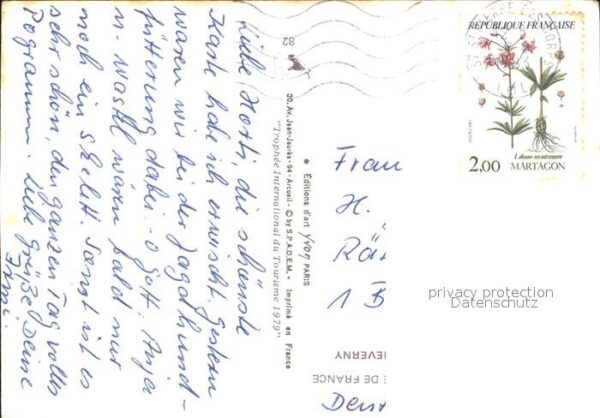 Liebe Horti, die schönste
Karte habe ich erwischt. Gestern
waren wir bei der Jagdhund-
fütterung dabei - o Gott. Anja
u. Wastl wären bald nur
noch ein Skelett. Sonst ist es
sehr schön, den ganzen Tag volles
Programm. Liebe Grüße Deine
Irmi.
82
30, Av. Jean-Jaurès - 94 - Arcueil - © by S.P.A.D.E.M. - Imprimé en France
"Trophée International du Tourisme 1979"
Éditions d'art YVON PARIS
CHEVERNY
DE FRANCE
RÉPUBLIQUE FRANÇAISE
Lilium martagon
2,00 MARTAGON
Frau
H.
1 B
privacy protection
Datenschutz